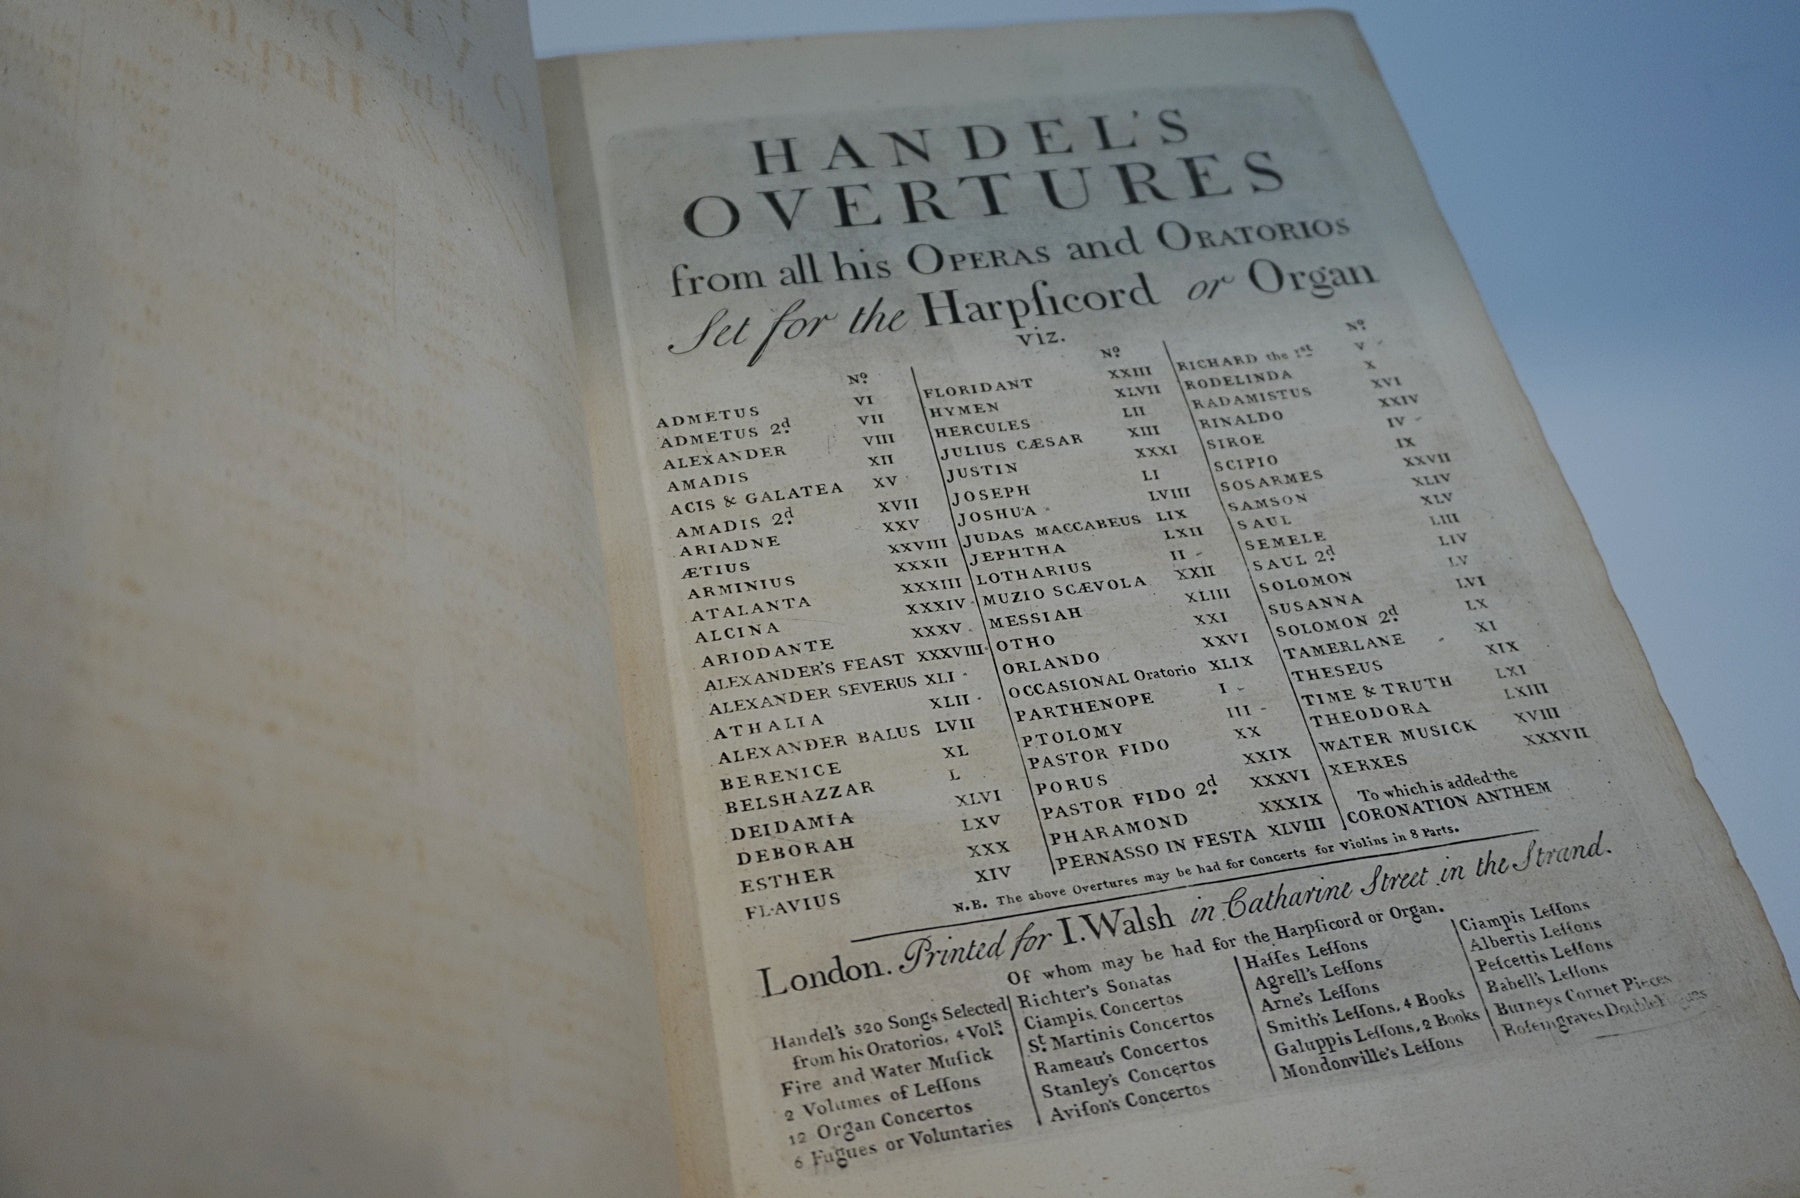 HANDEL'S
OVERTURES
from all his OPERAS and ORATORIOS
Set for the Harpſicord or Organ
viz.
Nº
ADMETUS VI
ADMETUS 2d. VII
ALEXANDER VIII
AMADIS XII
ACIS & GALATEA XV
AMADIS 2d. XVII
ARIADNE XXV
ÆTIUS XXVIII
ARMINIUS XXXII
ATALANTA XXXIII
ALCINA XXXIV
ARIODANTE XXXV
ALEXANDER'S FEAST XXXVIII
ALEXANDER SEVERUS XLI
ATHALIA XLII
ALEXANDER BALUS LVII
BERENICE XL
BELSHAZZAR L
DEIDAMIA XLVI
DEBORAH LXV
ESTHER XXX
FLAVIUS XIV
Nº
FLORIDANT XXIII
HYMEN XLVII
HERCULES LII
JULIUS CÆSAR XIII
JUSTIN XXXI
JOSEPH LI
JOSHUA LVIII
JUDAS MACCABEUS LIX
JEPHTHA LXII
LOTHARIUS II
MUZIO SCÆVOLA XXII
MESSIAH XLIII
OTHO XXI
ORLANDO XXVI
OCCASIONAL Oratorio XLIX
PARTHENOPE I
PTOLOMY III
PASTOR FIDO XX
PORUS XXIX
PASTOR FIDO 2d. XXXVI
PHARAMOND XXXIX
PERNASSO IN FESTA XLVIII
Nº
RICHARD the 1st V
RODELINDA X
RADAMISTUS XVI
RINALDO XXIV
SIROE IV
SCIPIO IX
SOSARMES XXVII
SAMSON XLIV
SAUL XLV
SEMELE LIII
SAUL 2d. LIV
SOLOMON LV
SUSANNA LVI
SOLOMON 2d. LX
TAMERLANE XI
THESEUS XIX
TIME & TRUTH LXI
THEODORA LXIII
WATER MUSICK XVIII
XERXES XXXVII
To which is added the
CORONATION ANTHEM
N.B. The above Overtures may be had for Concerts for Violins in 8 Parts.
London. Printed for I. Walsh in Catharine Street in the Strand.
Of whom may be had for the Harpſicord or Organ.
Handel's 320 Songs Selected
from his Oratorios, 4 Vols.
Fire and Water Muſick
2 Volumes of Leſſons
12 Organ Concertos
6 Fugues or Voluntaries
Richter's Sonatas
Ciampis Concertos
St. Martinis Concertos
Rameau's Concertos
Stanley's Concertos
Aviſon's Concertos
Haſſes Leſſons
Agrell's Leſſons
Arne's Leſſons
Smith's Leſſons, 4 Books
Galuppis Leſſons, 2 Books
Mondonville's Leſſons
Ciampis Leſſons
Albertis Leſſons
Peſcettis Leſſons
Babell's Leſſons
Burneys Cornet Pieces
Roſeingraves Double Fugues